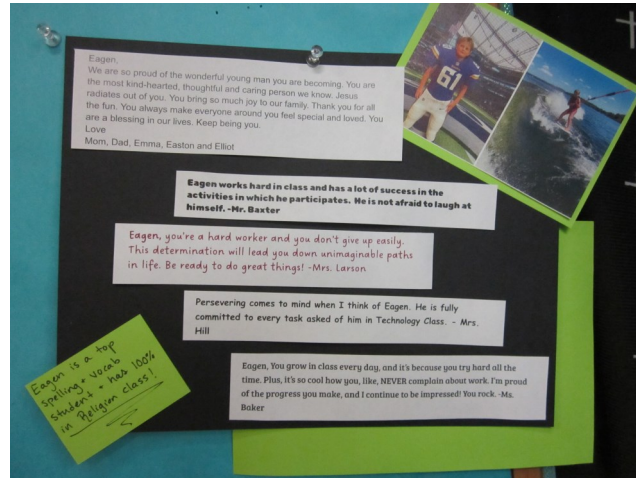 Eagen,
We are so proud of the wonderful young man you are becoming. You are
the most kind-hearted, thoughtful and caring person we know. Jesus
radiates out of you. You bring so much joy to our family. Thank you for all
the fun. You always make everyone around you feel special and loved. You
are a blessing in our lives. Keep being you.
Love
Mom, Dad, Emma, Easton and Elliot
61
Eagen works hard in class and has a lot of success in the
activities in which he participates. He is not afraid to laugh at
himself. -Mr. Baxter
Eagen, you're a hard worker and you don't give up easily.
This determination will lead you down unimaginable paths
in life. Be ready to do great things! -Mrs. Larson
Persevering comes to mind when I think of Eagen. He is fully
committed to every task asked of him in Technology Class. - Mrs.
Hill
Eagen, You grow in class every day, and it's because you try hard all the
time. Plus, it's so cool how you, like, NEVER complain about work. I'm proud
of the progress you make, and I continue to be impressed! You rock. -Ms.
Baker
Eagen is a top
spelling + vocab
student + has 100%
in Religion class!